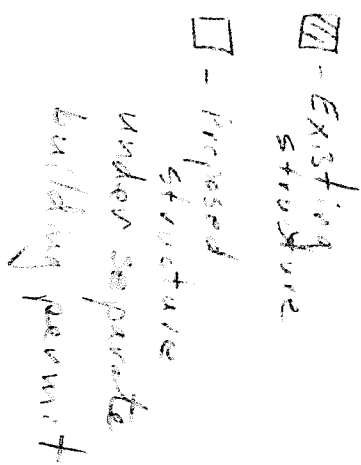 - Existing
structure
- Proposed
structure
under separate
building permit